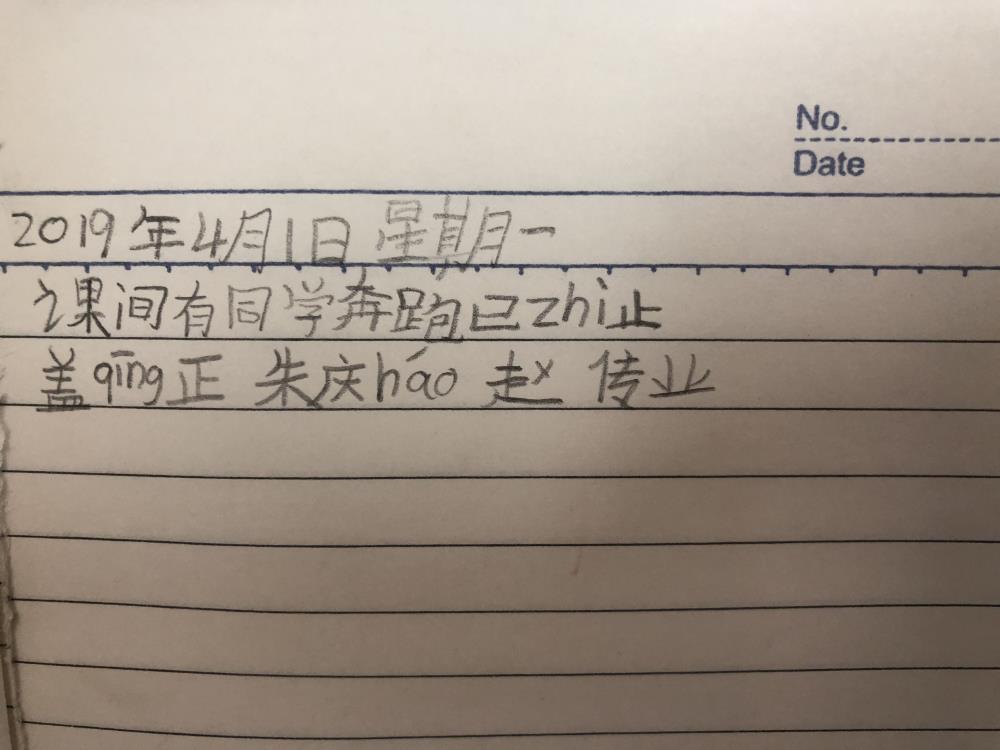 No.
Date
2019年4月1日 星期一
课间有同学奔跑已zhi止
盖qīng正 朱庆háo 赵 传业